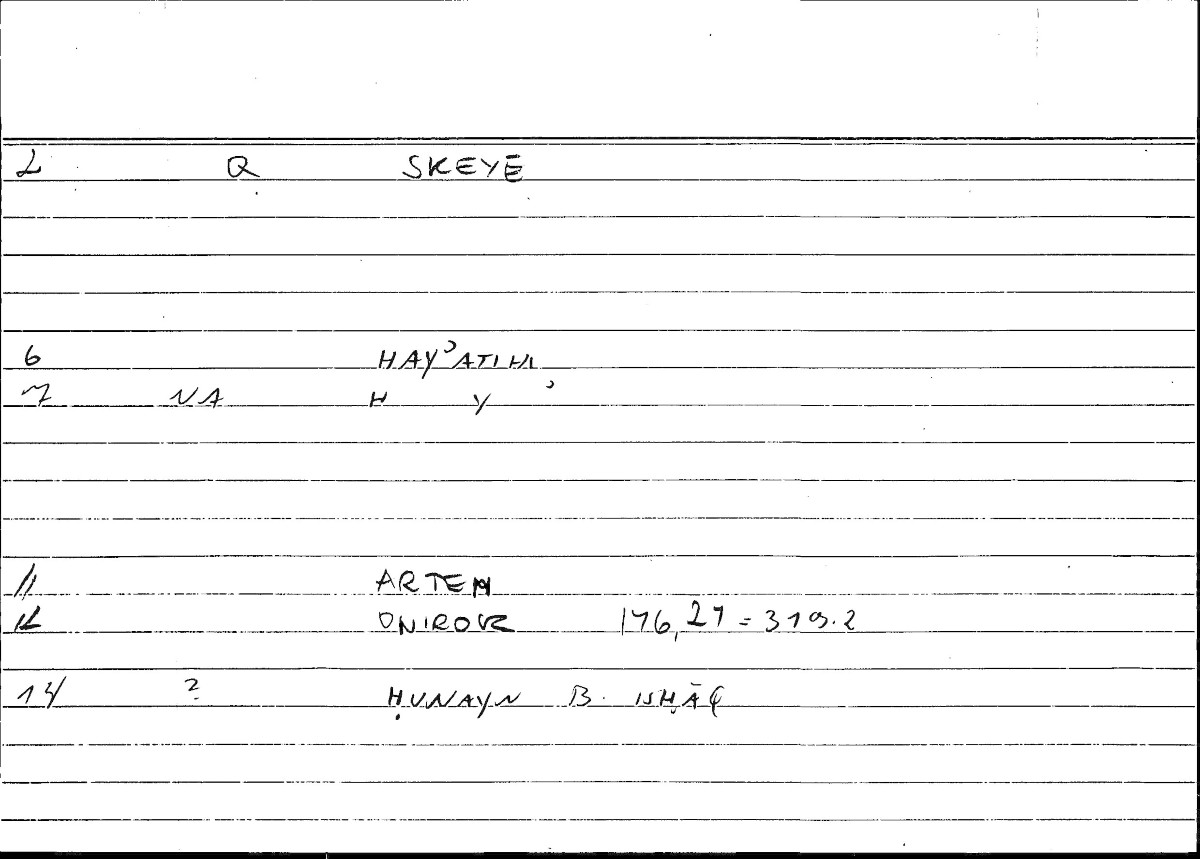 2 Q SKEYĒ
6 HAYʾATIHI
7 NA H Y ʾ
11 ARTEM
12 ONIROCR 176,21 = 319.2
14 ? ḤUNAYN B. ISḤĀQ